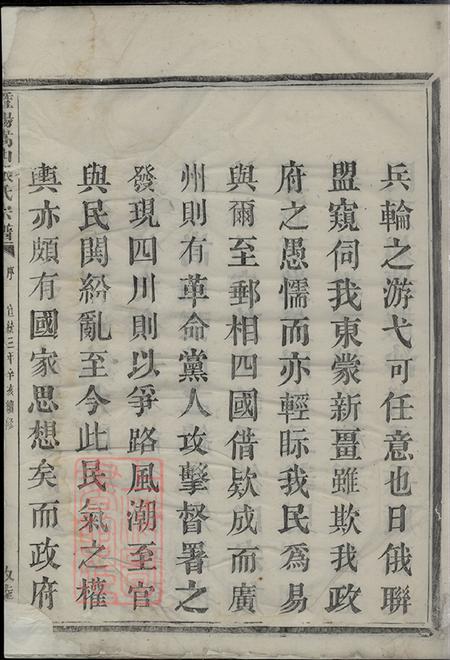 兵輪之游弋可任意也日俄聯
盟窺伺我東蒙新疆雖欺我政
府之愚懦而亦輕眎我民爲易
與爾至郵相四國借欵成而廣
州則有革命黨人攻擊督署之
發現四川則以爭路風潮至官
與民閧紛亂至今此民氣之權
輿亦頗有國家思想矣而政府
氏宗譜
序
宣統三年辛亥續修